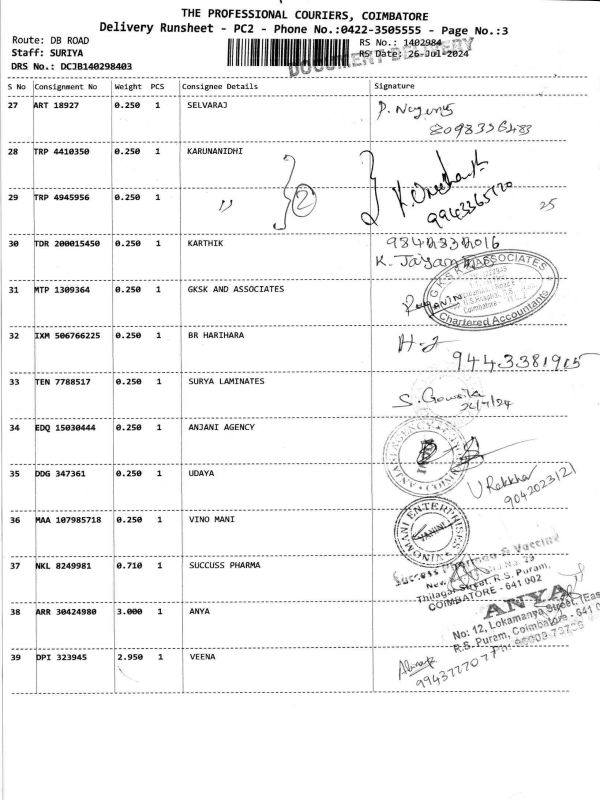 THE PROFESSIONAL COURIERS, COIMBATORE
Delivery Runsheet - PC2 - Phone No.:0422-3505555 - Page No.:3
Route: DB ROAD
Staff: SURIYA
DRS No.: DCJB140298403
RS No.: 1402984
RS Date: 26-Jul-2024
DOCUMENT DELIVERY
S No Consignment No Weight PCS Consignee Details Signature
27 ART 18927 0.250 1 SELVARAJ
8098356483
28 TRP 4410350 0.250 1 KARUNANIDHI
2
29 TRP 4945956 0.250 1 "
9943365120
25
30 TDR 200015450 0.250 1 KARTHIK
K. Jayam
31 MTP 1309364 0.250 1 GKSK AND ASSOCIATES
GKSK ASSOCIATES
Chartered Accountants
32 IXM 506766225 0.250 1 BR HARIHARA
9443381915
33 TEN 7788517 0.250 1 SURYA LAMINATES
S. Gowsika
26/7/24
34 EDQ 15030444 0.250 1 ANJANI AGENCY
ANJANI AGENCY
35 DDG 347361 0.250 1 UDAYA
U Rekkha
9042023121
36 MAA 107985718 0.250 1 VINO MANI
VINOMANI ENTERPRISES
37 NKL 8249981 0.710 1 SUCCUSS PHARMA
Success Pharma & Vaccine
Thilagar Street, R.S. Puram,
COIMBATORE - 641 002
38 ARR 30424980 3.000 1 ANYA
ANYA
No: 12, Lokamanya Street, (East
R.S. Puram, Coimbatore - 641 0
39 DPI 323945 2.950 1 VEENA
9943722707